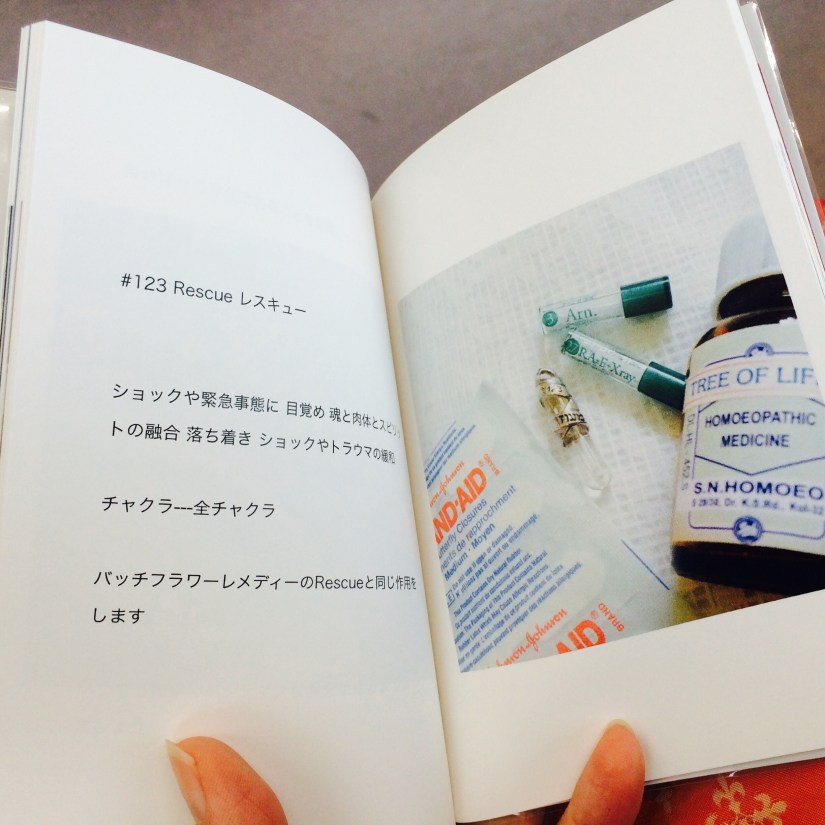 #123 Rescue レスキュー
ショックや緊急事態に 目覚め 魂と肉体とスピリッ
トの融合 落ち着き ショックやトラウマの緩和
チャクラ---全チャクラ
バッチフラワーレメディーのRescueと同じ作用を
します
3 Arn.
RA-E-Xray
TREE OF LIF
HOMOEOPATHIC
MEDICINE
S.N.HOMOEO
AND-AID
BRAND
Butterfly Closures
ents de rapprochement
Medium - Moyen
Johnson-Johnson
AID
BRAND